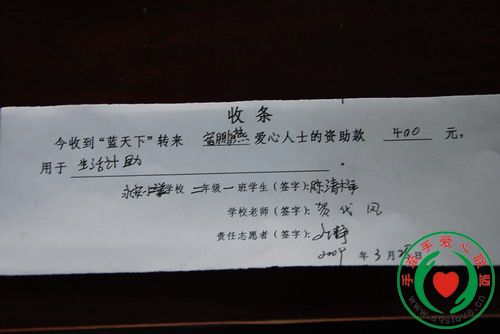 收条
今收到“蓝天下”转来 鹏燕 爱心人士的资助款 400 元,
用于 生活补助 .
永安小学学校 二年级一班学生(签字):陈清
学校老师(签字):贺代凤
责任志愿者(签字):
2009 年 3 月 日
手牵手爱心联盟